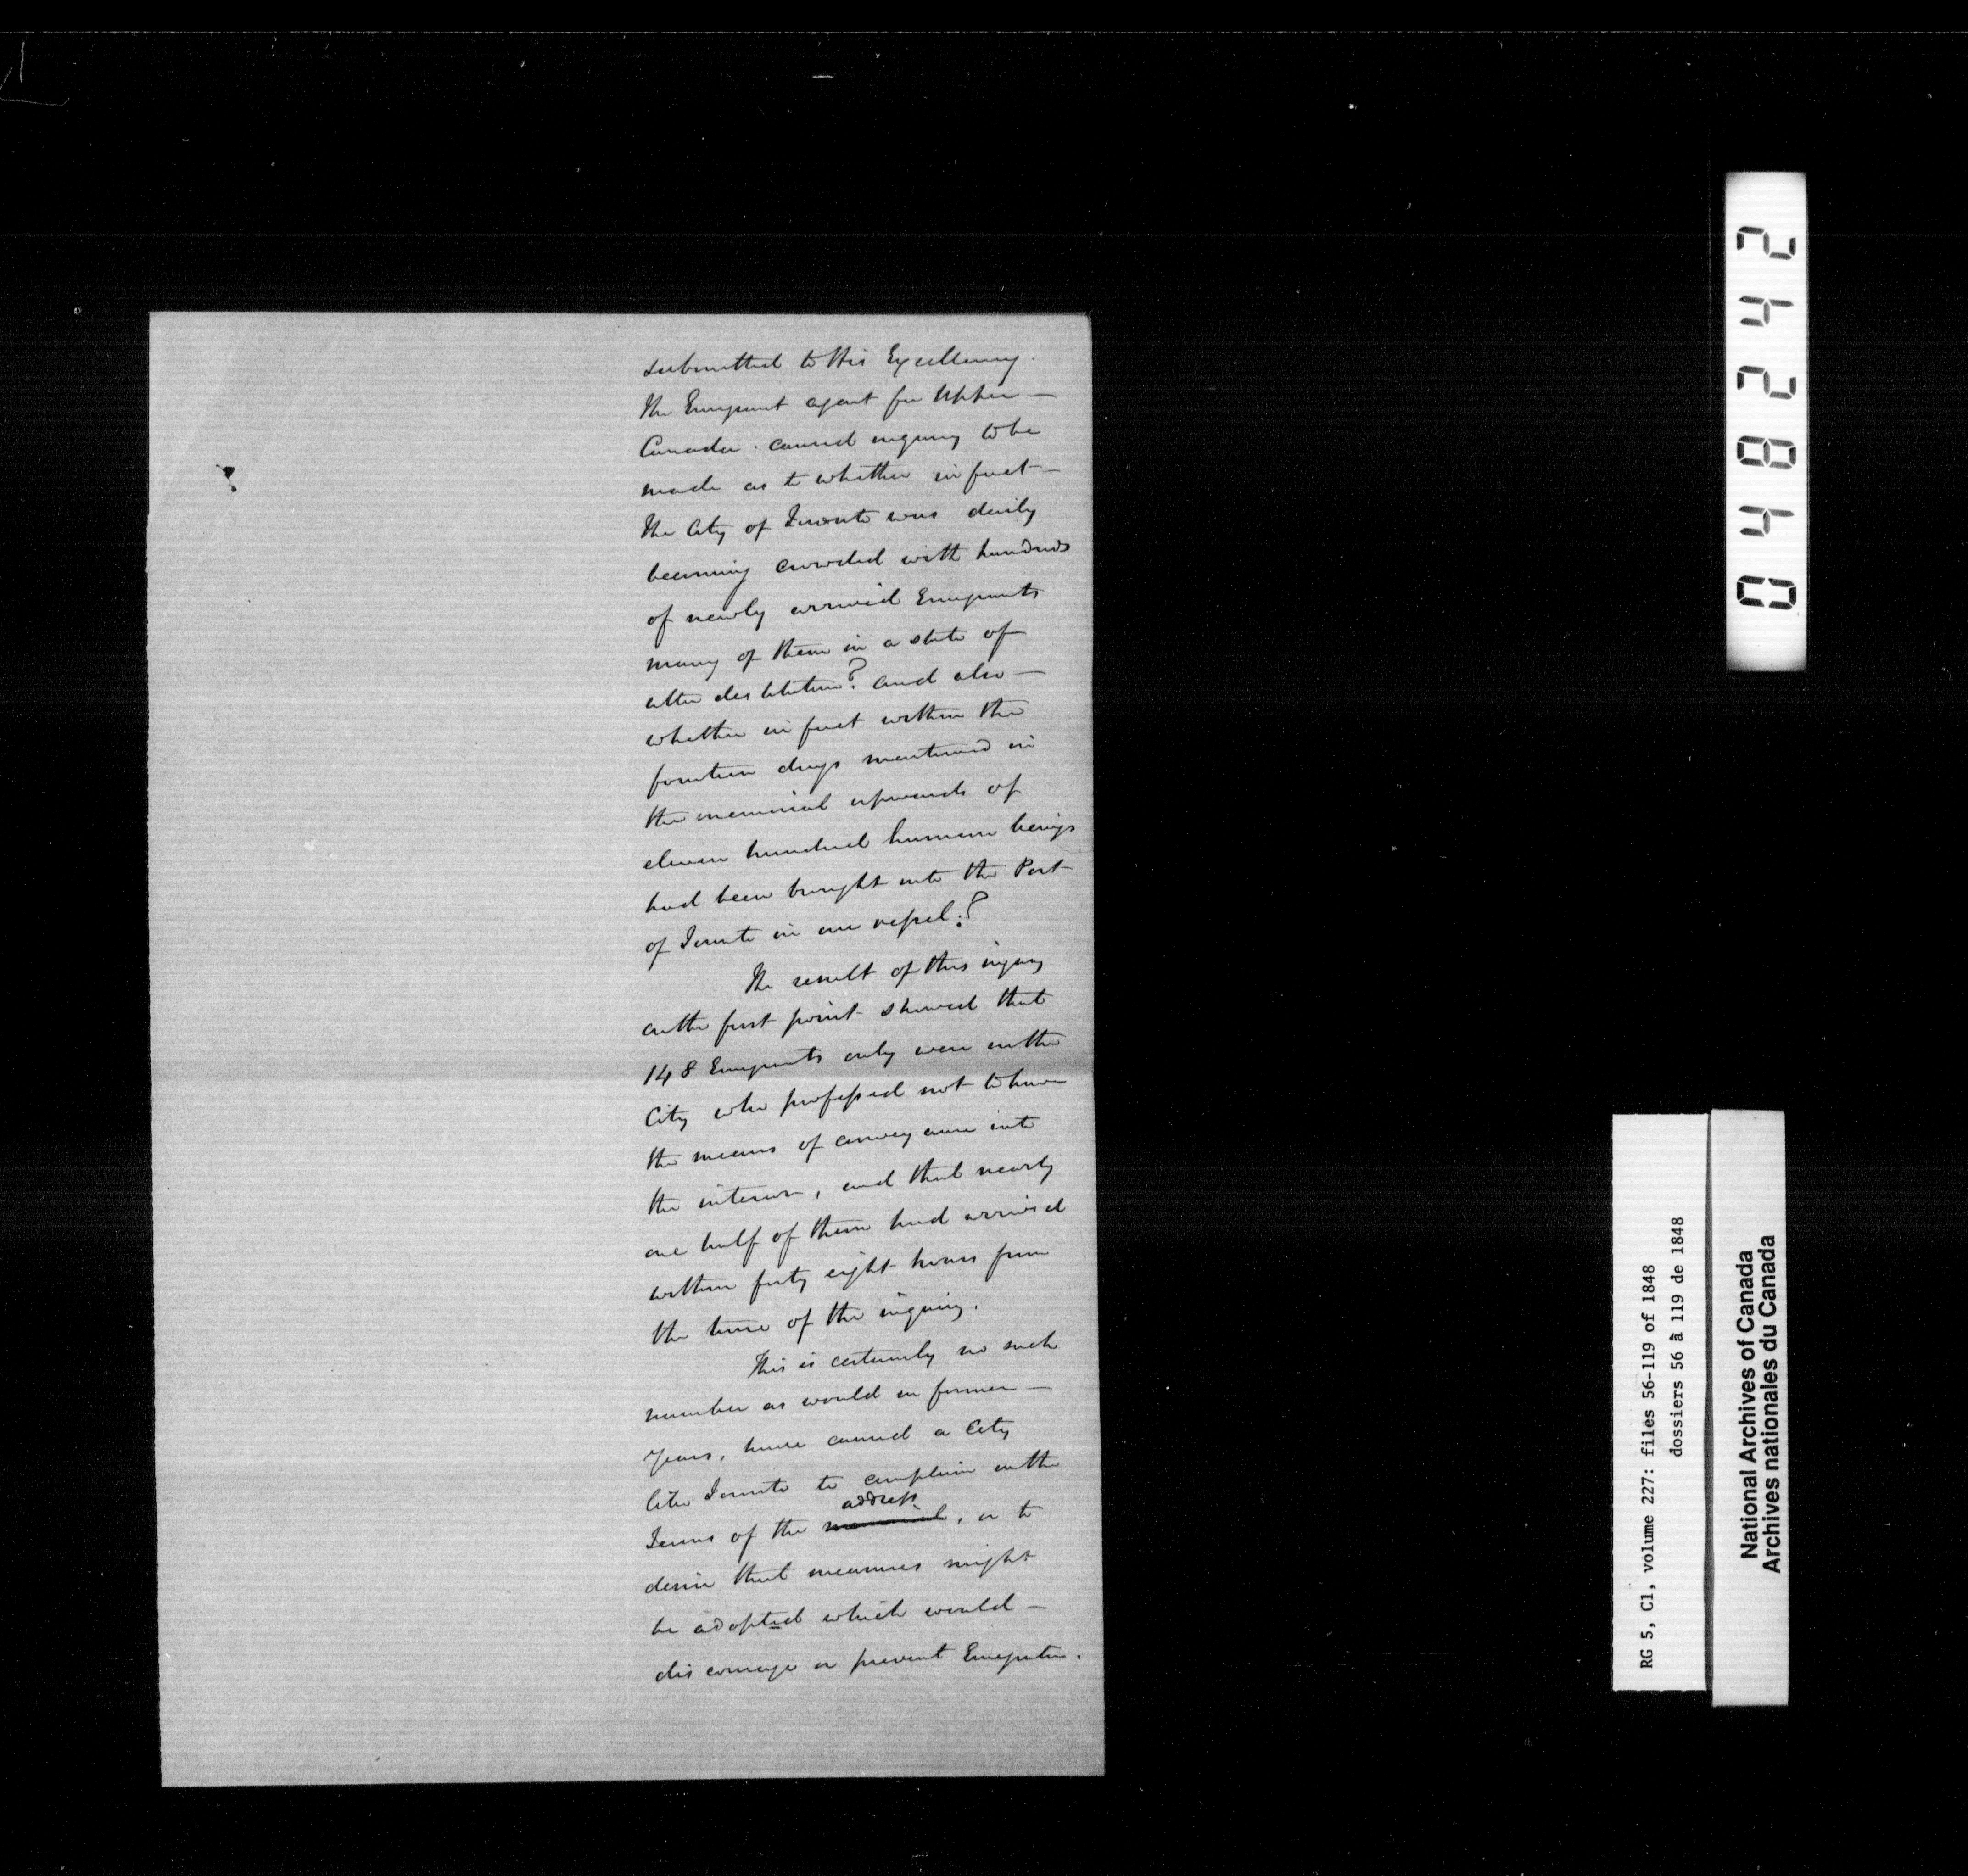 submitted to His Excellency.
The Emigrant agent for Upper —
Canada. caused inquiry to be
made as to whether in fact —
the City of Toronto was daily
becoming crowded with hundreds
of newly arrived Emigrants
many of them in a state of
utter destitution? and also —
whether in fact within the
fourteen days mentioned in
the memorial upwards of
eleven hundred human beings
had been brought into the Port
of Toronto in one vessel.?
The result of this inquiry
on the first point showed that
148 Emigrants only were in the
City who professed not to have
the means of conveyance into
the interior, and that nearly
one half of them had arrived
within forty eight hours from
the time of the inquiry.
This is certainly no such
number as would in former —
years, have caused a City
like Toronto to complain in the
address
Terms of the memorial, or to
desire that measures might
be adopted which would —
discourage or prevent Emigration.
0 4 8 2 4 2
RG 5, C1, volume 227: files 56-119 of 1848
dossiers 56 à 119 de 1848
National Archives of Canada
Archives nationales du Canada